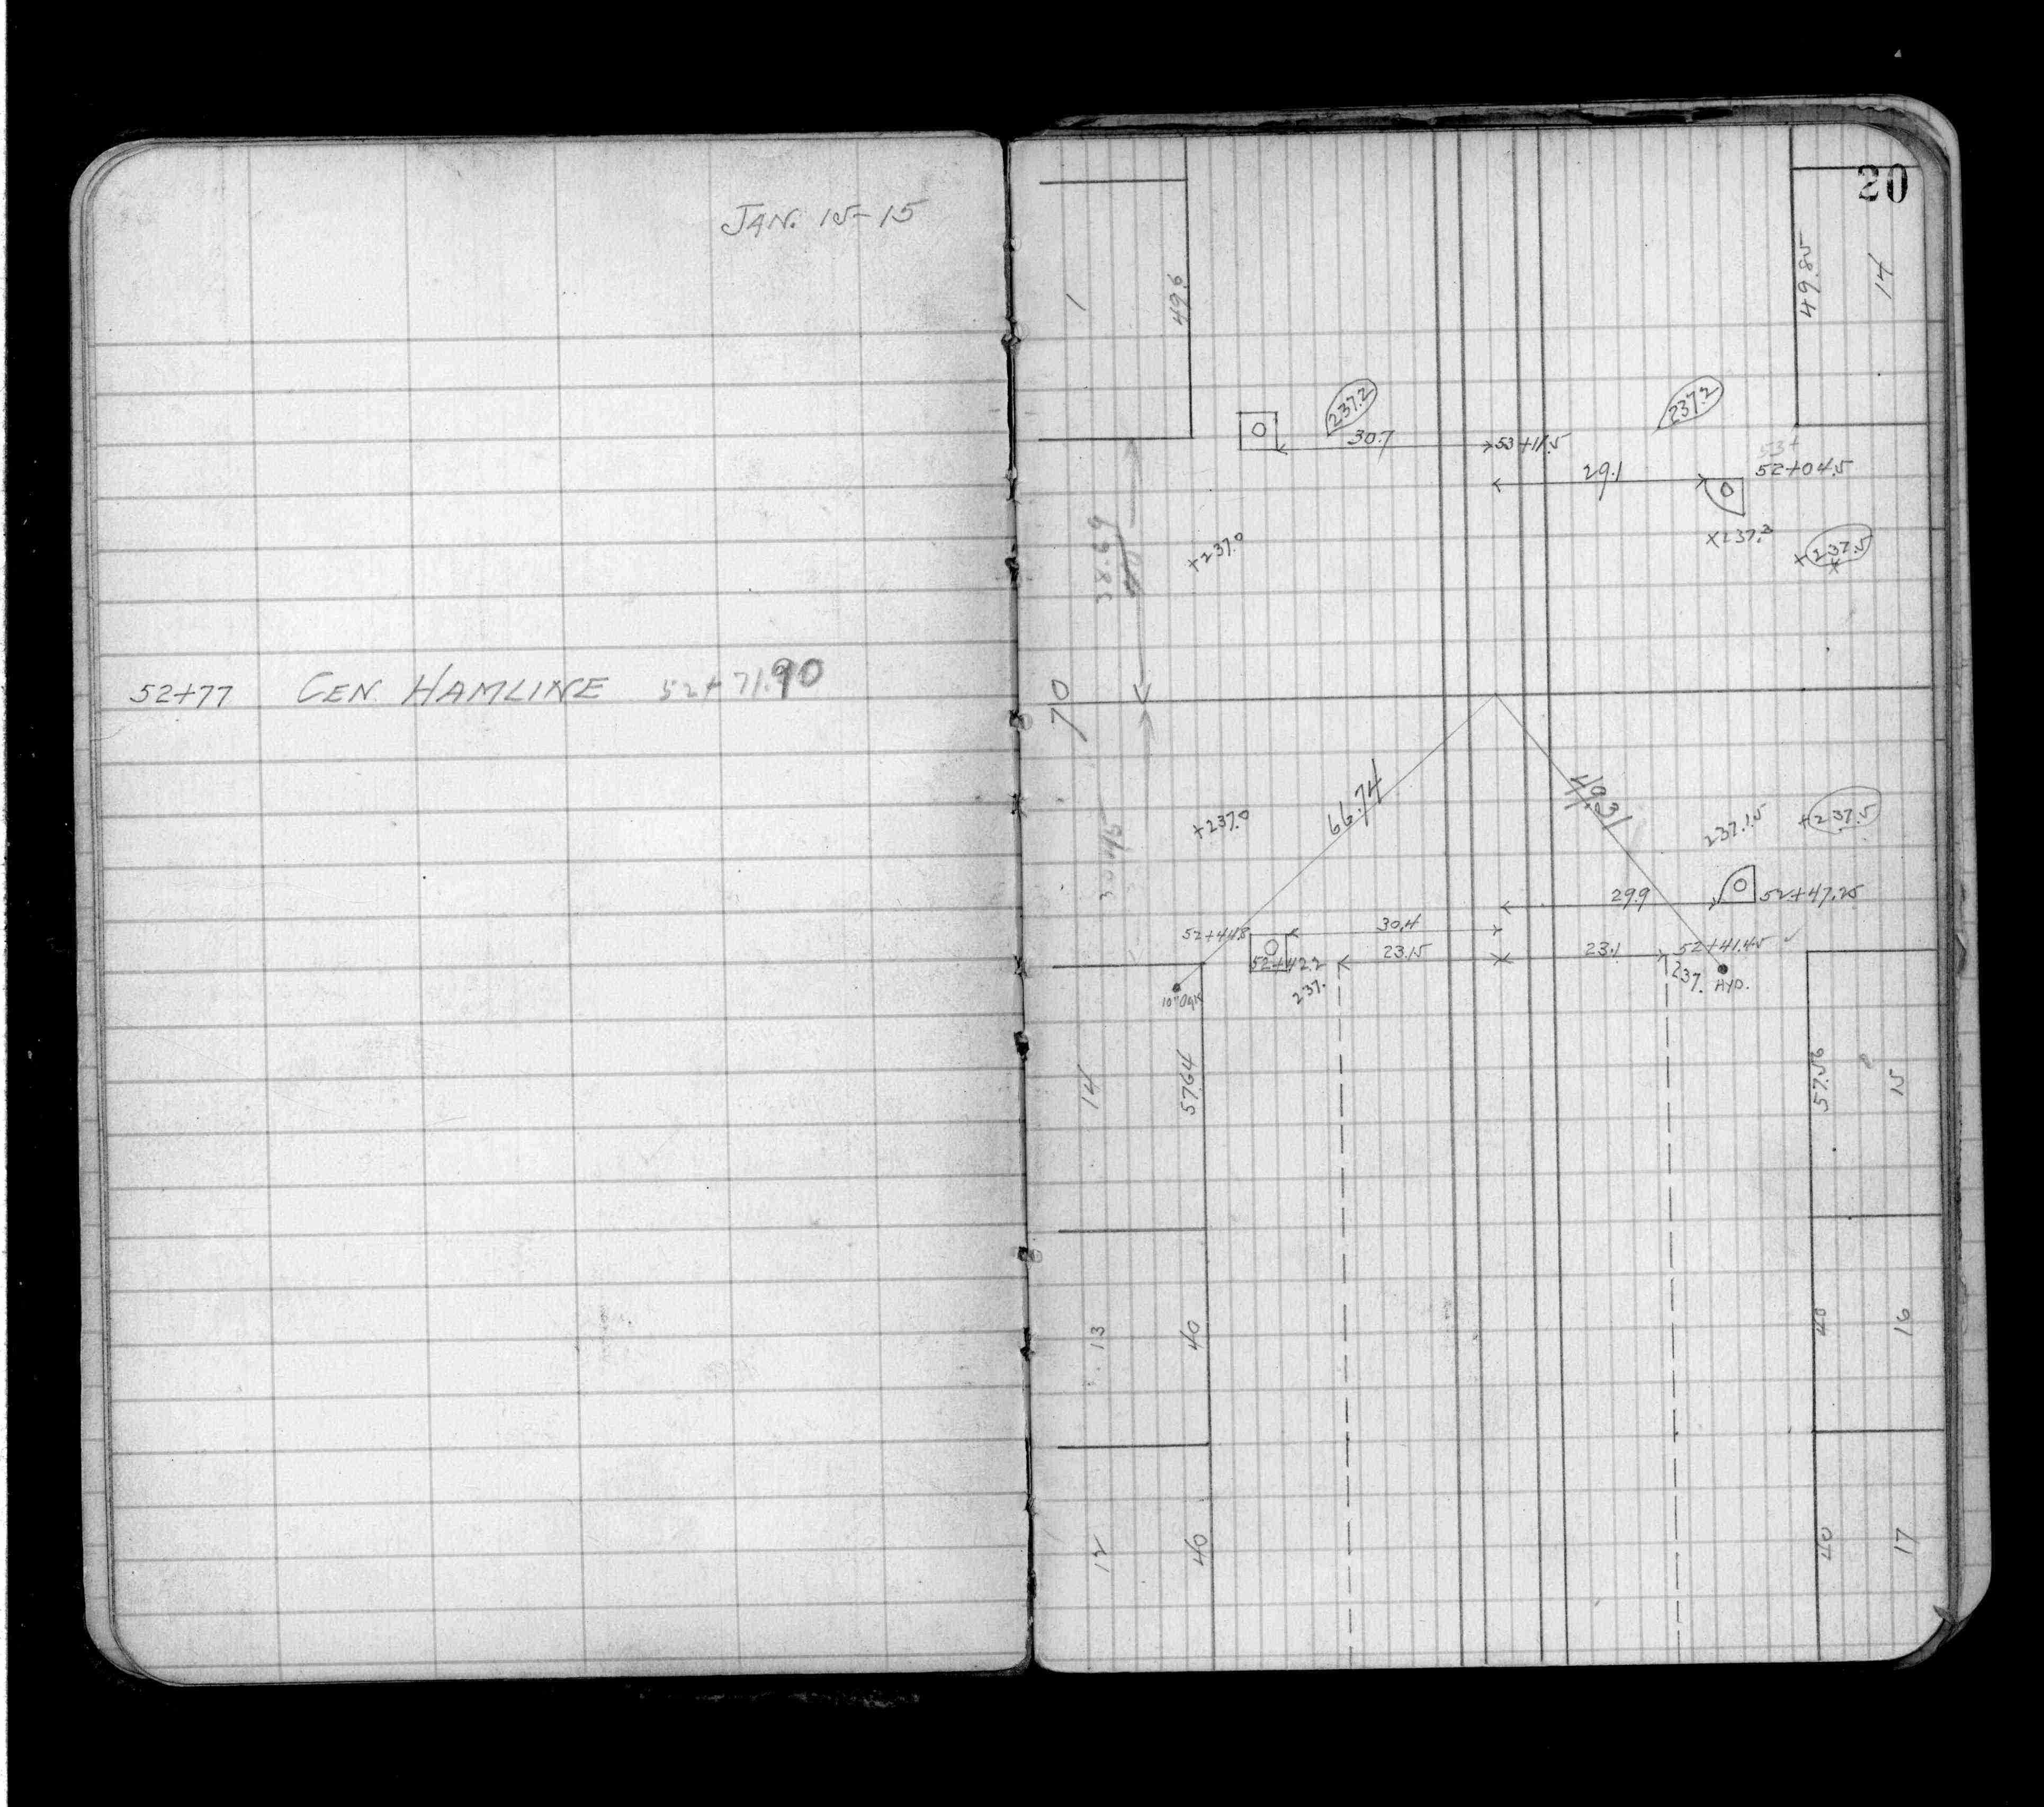 JAN. 15-15
52+77 CEN. HAMLINE 52+71.90
20
1
49.6
49.85
14
237.2
237.2
30.7
53+11.5
53+
52+04.5
29.1
38.69
+237.0
x237.3
+237.5
70
66.74
49.31
+237.0
237.15
+237.5
29.9
52+47.25
52+44.8
30.4
52+42.2
23.15
23.1
52+41.45
237.
237.
HYD.
14
57.64
57.56
15
13
40
40
16
12
40
40
17